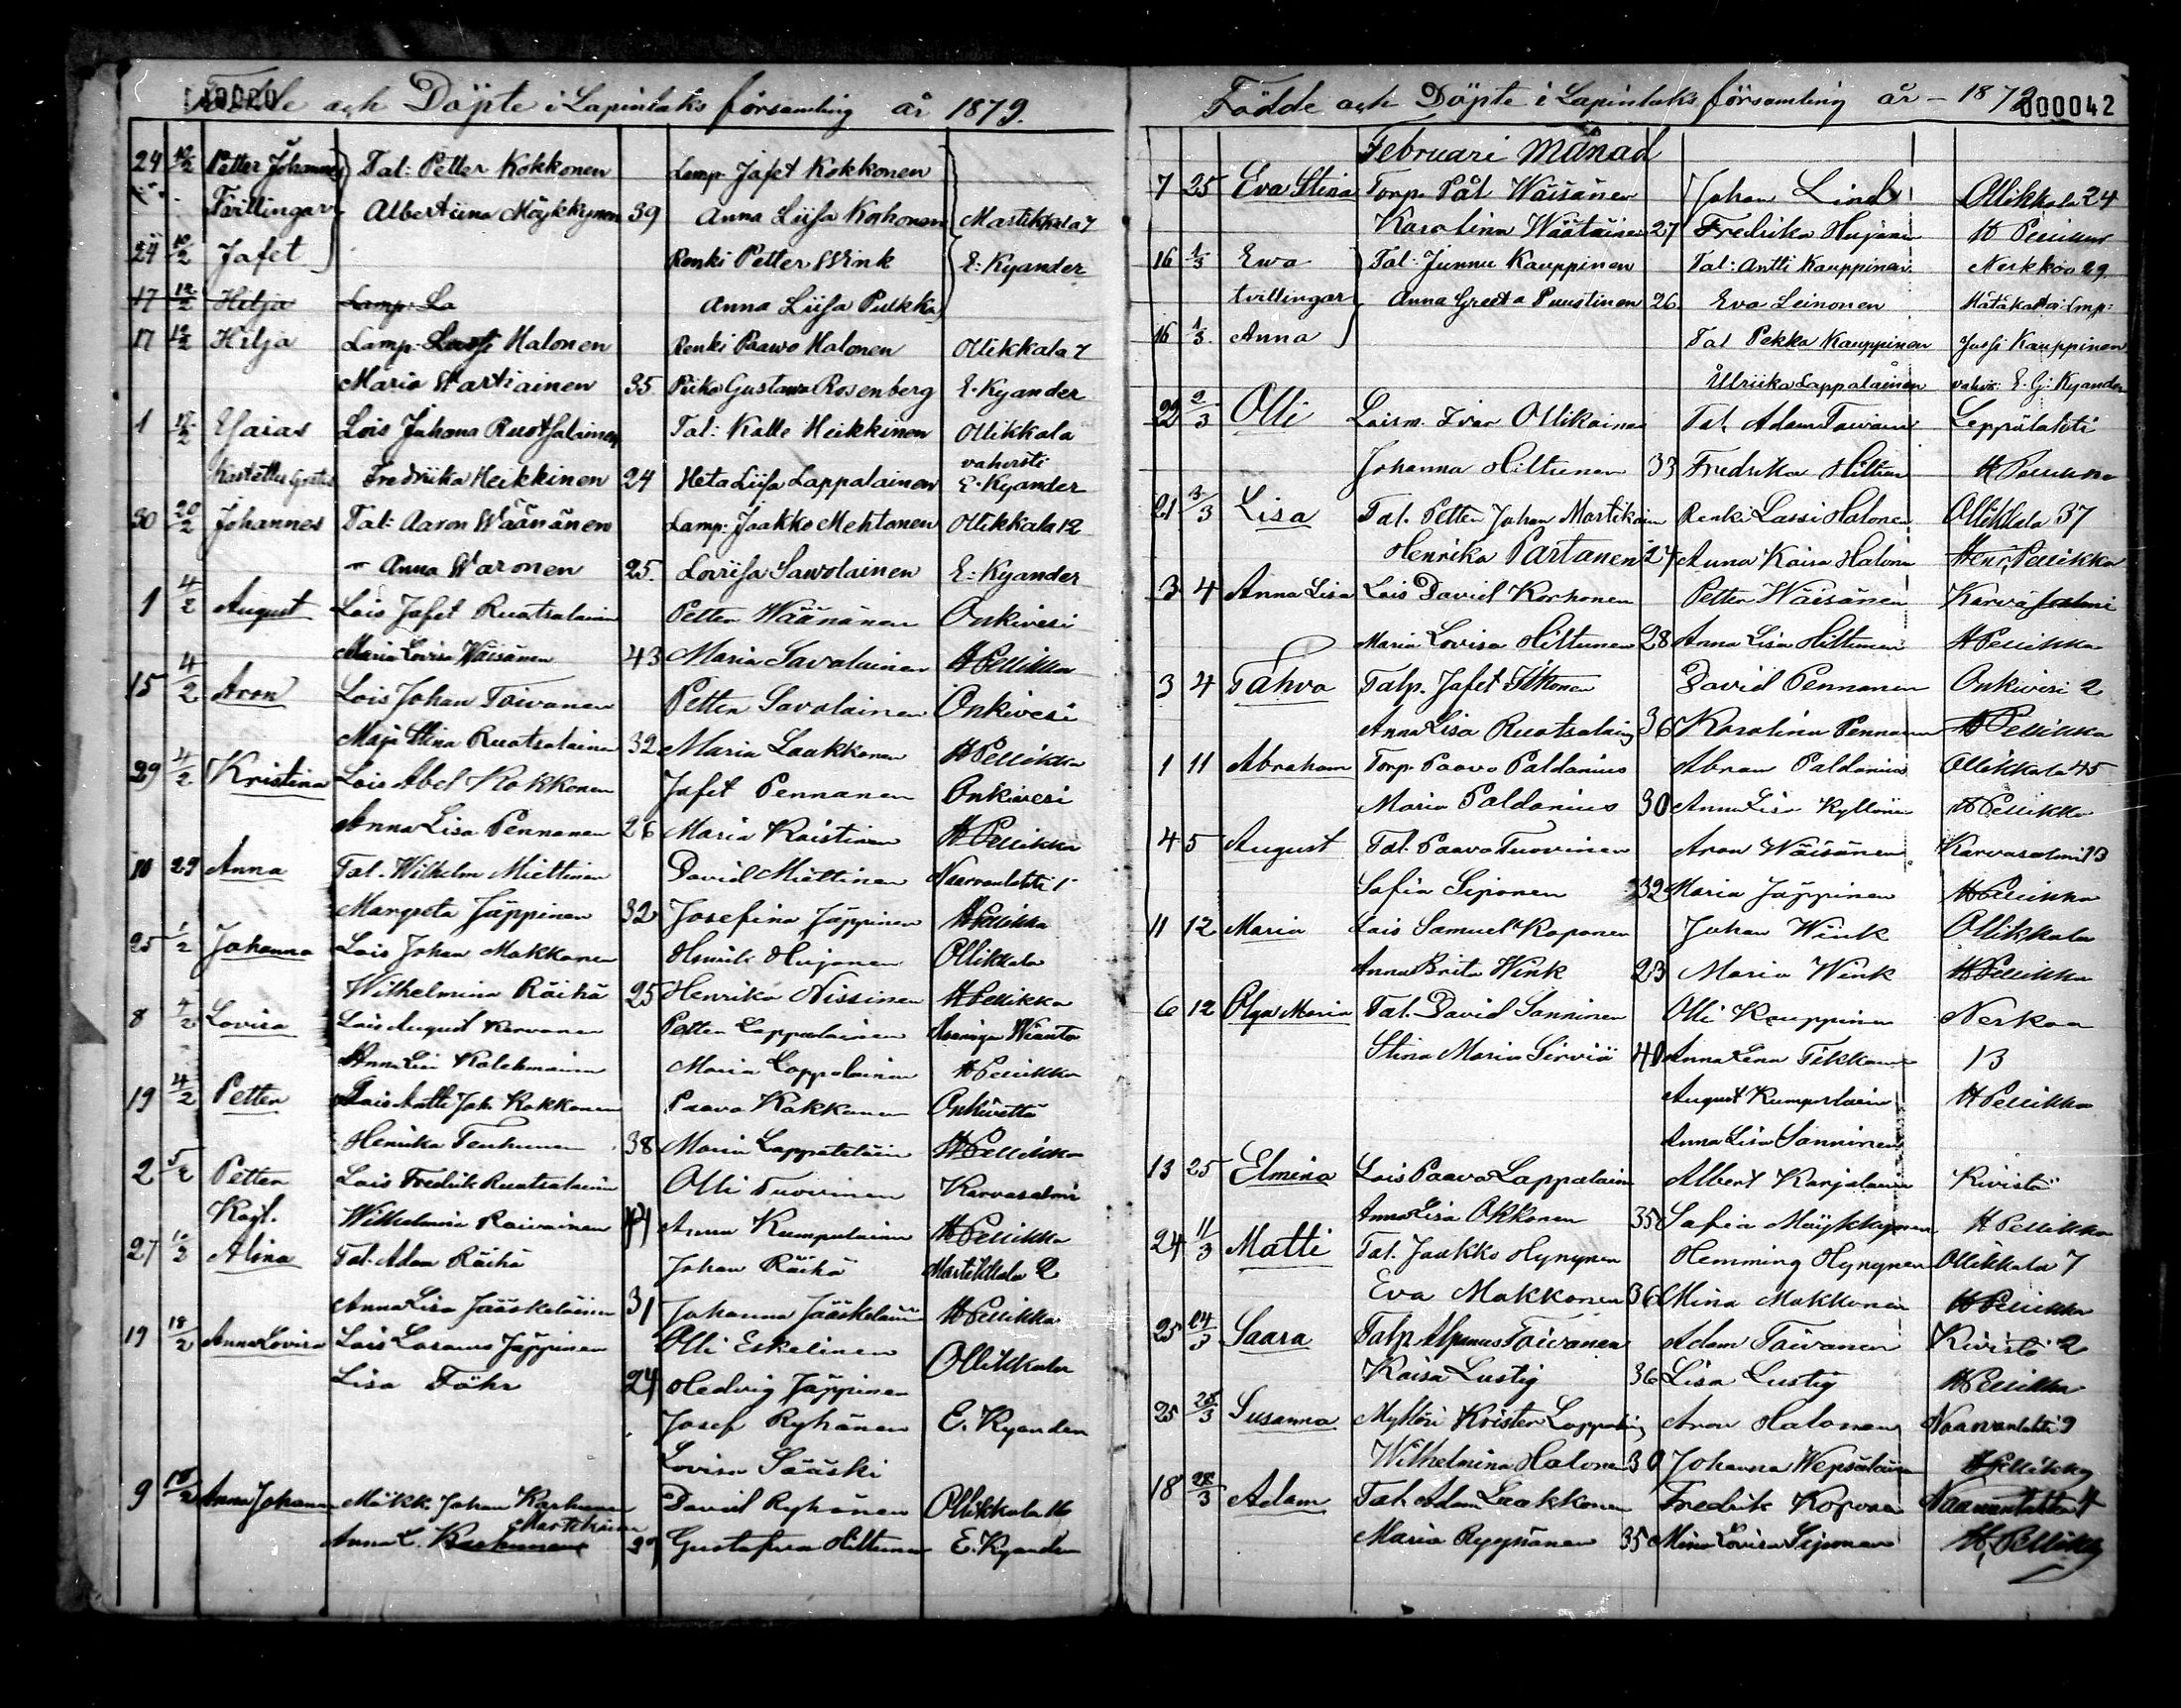 Födde och Döpte i Lapinlaks församling år 1879.
24 10/2 Petter Johannes Tal: Petter Kokkonen Lamp. Jafet Kokkonen
Tvillingar Albertiina Möykkynen 39 Anna Liisa Korhonen Martikkala 7
24 10/2 Jafet Renki Petter Wink E: Kyander
17 12/2 Hilja Lamp: La Anna Liisa Pulkka
17 12/2 Hilja Lamp. Lassi Halonen Renki Paawo Halonen Ollikkala 7
Maria Wartiainen 35 Piika Gustawa Rosenberg E. Kyander
1 Esaias Lois Juhana Ruotsalainen Tal: Kalle Heikkinen Ollikkala
vahvisti
Fredriika Heikkinen 24 Heta Liisa Lappalainen E. Kyander
30 20/2 Johannes Tal: Aaron Wäänänen Lamp: Jaakko Mehtonen Ollikkala 12
Anna Waronen 25. Loviisa Sawolainen E: Kyander
1 4/2 August Lois Jafet Ruotsalainen Petter Wäänänen Onkivesi
Maria Lovisa Wäisänen 43 Maria Savolainen H Pellikka
15 4/2 Aron Lois Johan Toivanen Petter Savolainen Onkivesi
Maja Stina Ruotsalainen 32 Maria Laakkonen H Pellikka
29 4/2 Kristina Lois Abel Kokkonen Jafet Pennanen Onkivesi
Anna Lisa Pennanen 26 Maria Koistinen H Pellikka
10 29 Anna Tal. Wilhelm Miettinen David Miettinen Naarvanlahti 1
Margreta Jäppinen 32 Josefina Jäppinen H Pellikka
25 1/2 Johanna Lois Johan Makkonen Hujanen Ollikkala
Wilhelmina Räihä 25 Henrika Nissinen H Pellikka
8 4/2 Lovisa Lois August Korvanen Petter Lappalainen
Maria Lappalainen H Pellikka
19 4/2 Petter Lois Matti Joh. Kokkonen Paavo Kokkonen
Henrika Tenhunen 38 Maria Lappeteläin H Pellikka
2 5/2 Petter Lois Fredrik Ruotsalainen Olli Tuovinen Karvasalmi
Wilhelmina Roivainen 41 Anna Kumpulainen H Pellikka
27 Alina Tal. Adam Räihä Johan Räihä Martikkala 2
Anna Lisa Jääskeläinen 31 Johanna Jääskeläin H Pellikka
19 18/2 Anna Lovisa Lois Lasarus Jäppinen Olli Eskelinen Ollikkala
Lisa Föhr 24 Hedvig Jäppinen
Josef Ryhänen E. Kyander
Lovisa Sääski
9 18/2 Anna Johanna Mökk. Johan Korhonen David Ryhänen Ollikkala 16
Martikainen
Anna L. 29 Gustafva Hiltunen E. Kyander
000042
Födde och Döpte i Lapinlaks församling år 1879
Februari Månad
7 25 Eva Stina Torp. Pål Wäisänen Johan Lind Ollikkala 24
Karolina Wäätäinen 27 Fredrika Hujanen H Pellikka
16 1/3 Ewa Tal: Junnu Kauppinen Tal: Antti Kauppinen Nerkkoo 29
tvillingar Anna Greeta Puustinen 26. Eva Leinonen
16 1/3. Anna Tal Pekka Kauppinen Jussi Kauppinen
Ulriika Lappalainen vahvis: E. G: Kyander
22 2/3 Olli Loism. Ivar Ollikainen Tal. Adam Toivanen Leppälahti
Johanna Hiltunen 33 Fredrika Hiltunen H Pellikka
21 3/3 Lisa Tal. Petter Johan Martikain Renki Lassi Halonen Ollikkala 37
Henrika Partanen 27 Anna Kaisa Halonen Henr. Pellikka
3 4 Anna Lisa Lois David Korhonen Petter Wäisänen Karvasalmi
Maria Lovisa Hiltunen 28 Anna Lisa Hiltunen H Pellikka
3 4 Tahvo Talp. Jafet Itkonen David Pennanen Onkivesi 2
Anna Lisa Ruotsalain 36 Karolina Pennanen H Pellikka
1 11 Abraham Torp. Paavo Paldanius Abram Paldanius Ollikkala 45
Maria Paldanius 30 Anna Lisa Kyllönen H Pellikka
4 5 August Tal. Paavo Tuovinen Aron Wäisänen Karvasalmi 13
Sofia Siponen 32 Maria Jäppinen H Pellikka
11 12 Maria Lois Samuel Koponen Johan Wink Ollikkala
Anna Brita Wink 23 Maria Wink H Pellikka
6 12 Olga Maria Tal. David Sanninen Olli Kauppinen Nerkoo
Stina Maria Serviä 40 Anna Lena Tikkanen 13
August Kumpulain H Pellikka
Anna Lisa Sanninen
13 25 Elmina Lois Paavo Lappalain Albert Karjalainen Kivistö
Anna Lisa Okkonen 35 Sofia Möykkynen H Pellikka
24 11/3 Matti Tal. Jaakko Hynynen Hemming Hynynen Ollikkala 7
Eva Makkonen 36 Mina Makkonen H Pellikka
25 24/3 Saara Talp. Toivanen Adam Toivanen Kivistö 2
Kaisa Lustig 36 Lisa Lustig H Pellikka
25 28/3 Susanna Mylläri Krister Lappalain Aron Halonen Naarvanlahti 9
Wilhelmina Halonen 30 Johanna Wepsäläinen H Pellikka
18 28/3 Adam Tal. Adam Laakkonen Fredrik Korvan Naarvanlahti 4
Maria Ryynänen 35 Mina Lovisa Siponen H. Pellikka